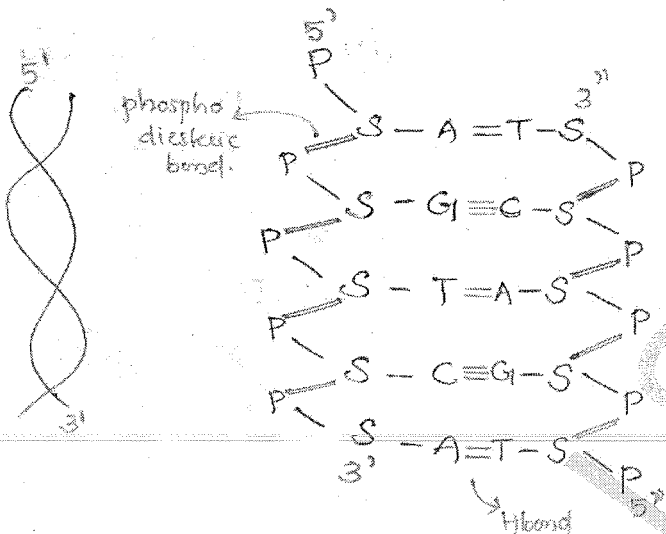 5'
P
5'
3"
phospho
diesteric
bond.
S - A = T - S
P
P
S - G ≡ C - S
P
P
S - T = A - S
P
P
S - C ≡ G - S
P
P
S - A = T - S
3'
3'
P
5"
Hbond